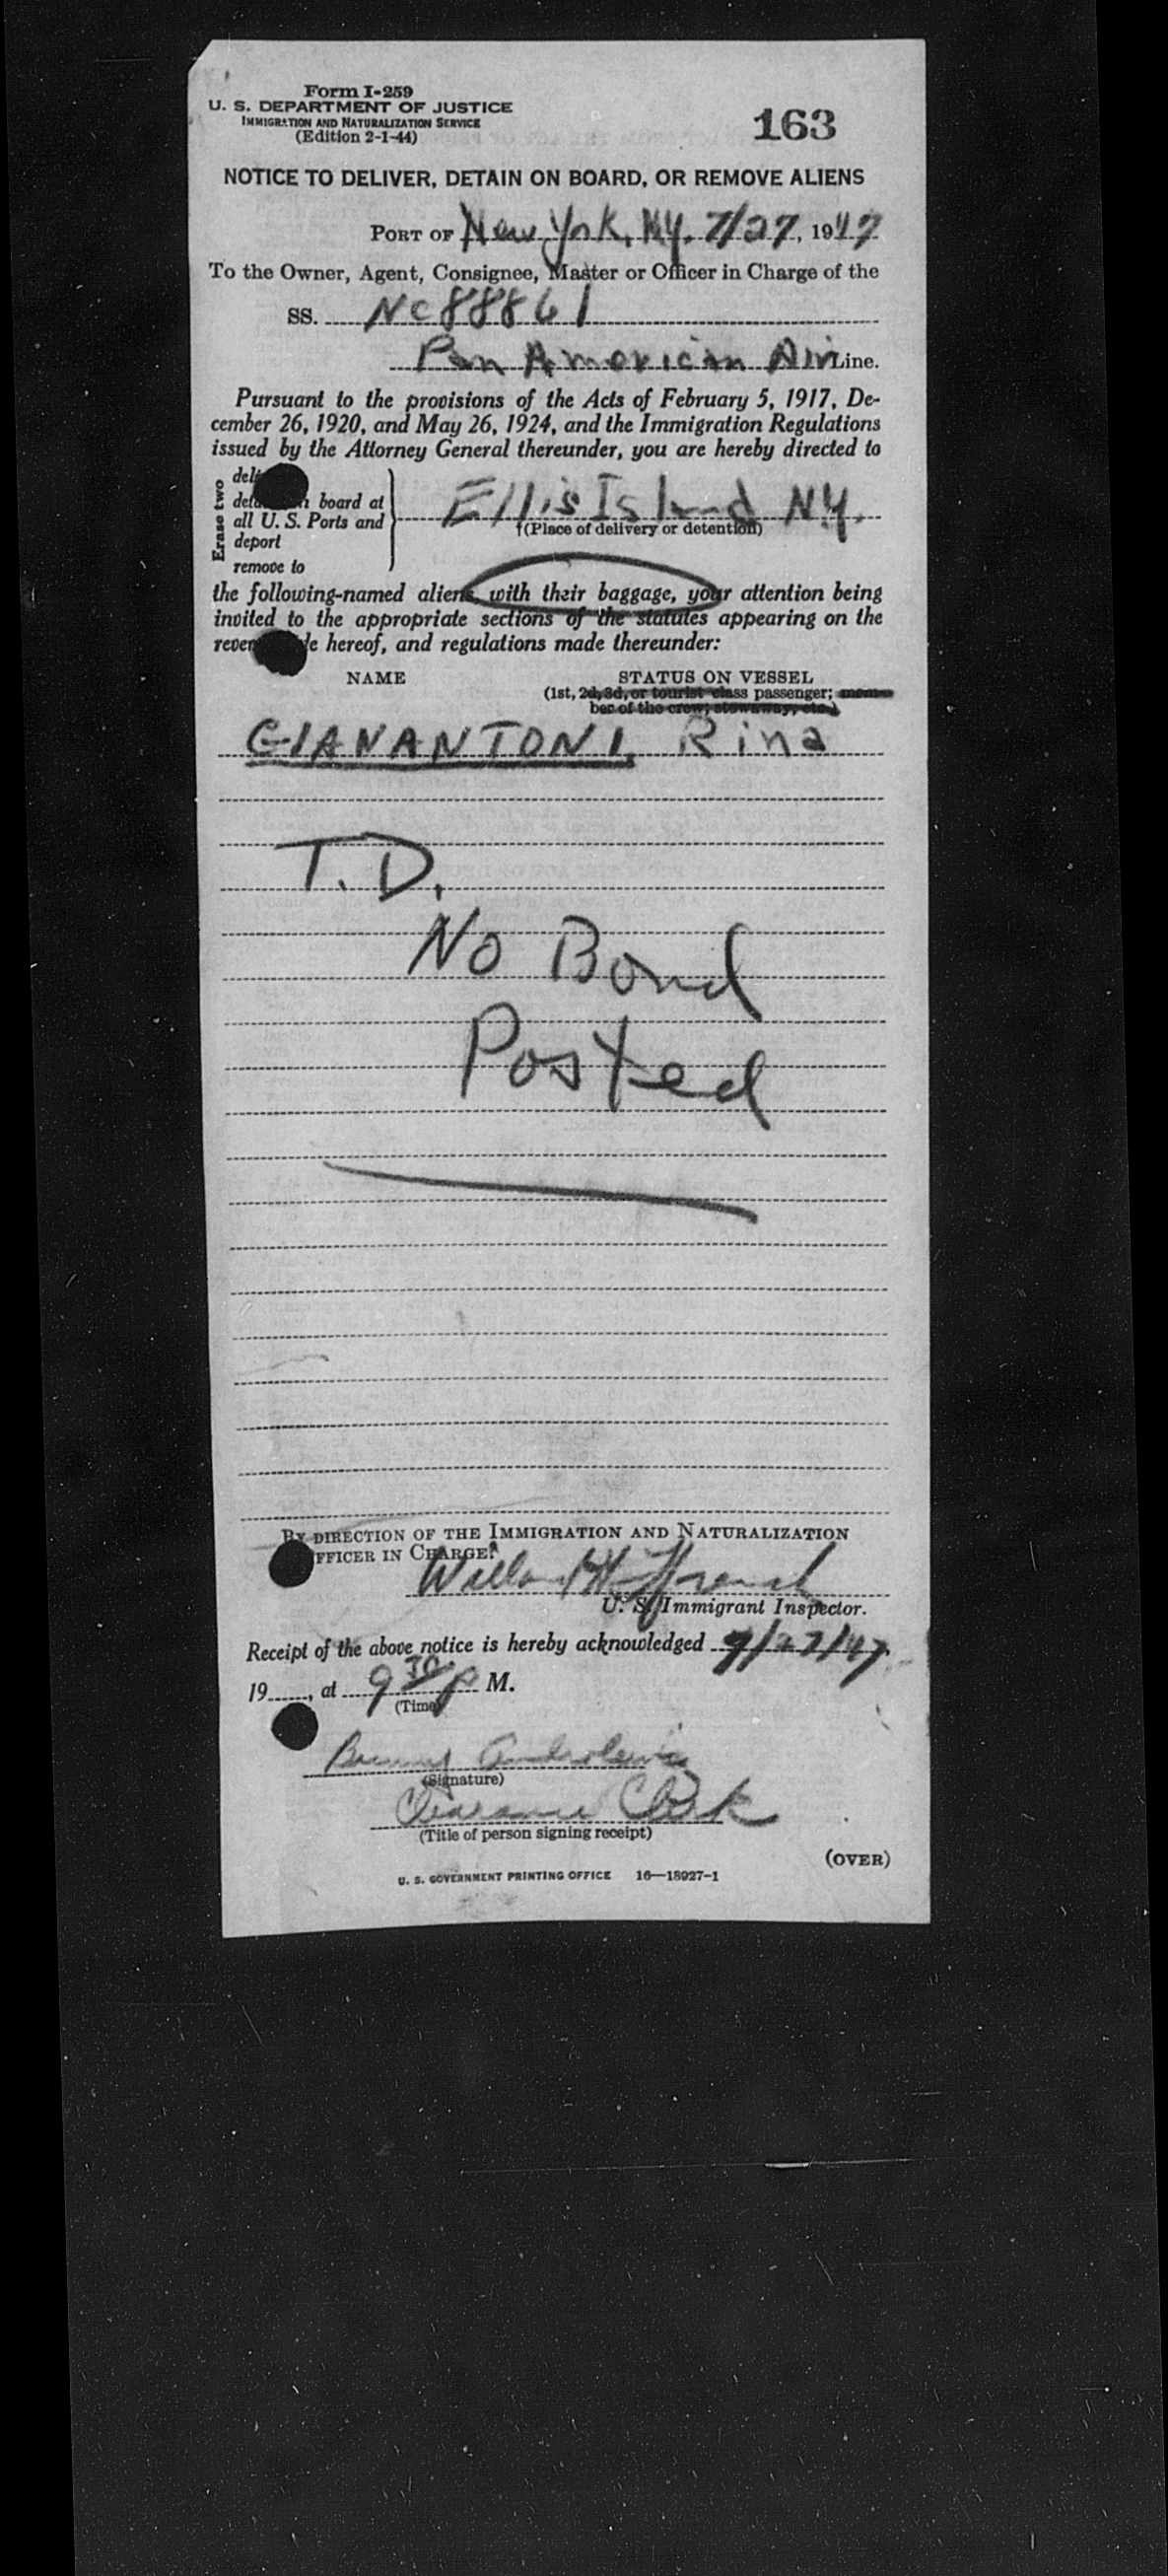 Form I-259
U. S. DEPARTMENT OF JUSTICE
IMMIGRATION AND NATURALIZATION SERVICE
(Edition 2-1-44)
163
NOTICE TO DELIVER, DETAIN ON BOARD, OR REMOVE ALIENS
PORT OF New York, N.Y. 7/27, 1947
To the Owner, Agent, Consignee, Master or Officer in Charge of the
SS. NC88861
Pan American Air Line.
Pursuant to the provisions of the Acts of February 5, 1917, De-
cember 26, 1920, and May 26, 1924, and the Immigration Regulations
issued by the Attorney General thereunder, you are hereby directed to
Erase two
board at
all U. S. Ports and
deport
remove to
Ellis Island N.Y.
†(Place of delivery or detention)
the following-named aliens, with their baggage, your attention being
invited to the appropriate sections of the statutes appearing on the
hereof, and regulations made thereunder:
NAME
STATUS ON VESSEL
(1st, 2d, 3d, or tourist class passenger; mem-
ber of the crew; stowaway, etc.)
GIANANTONI, Rina
T.D.
No Bond
Posted
BY DIRECTION OF THE IMMIGRATION AND NATURALIZATION
OFFICER IN CHARGE:
U. S. Immigrant Inspector.
Receipt of the above notice is hereby acknowledged 7/27/47
19 , at 9 30 P M.
(Time)
(Signature)
Clearance Clerk
(Title of person signing receipt)
(OVER)
U. S. GOVERNMENT PRINTING OFFICE 16—18927-1